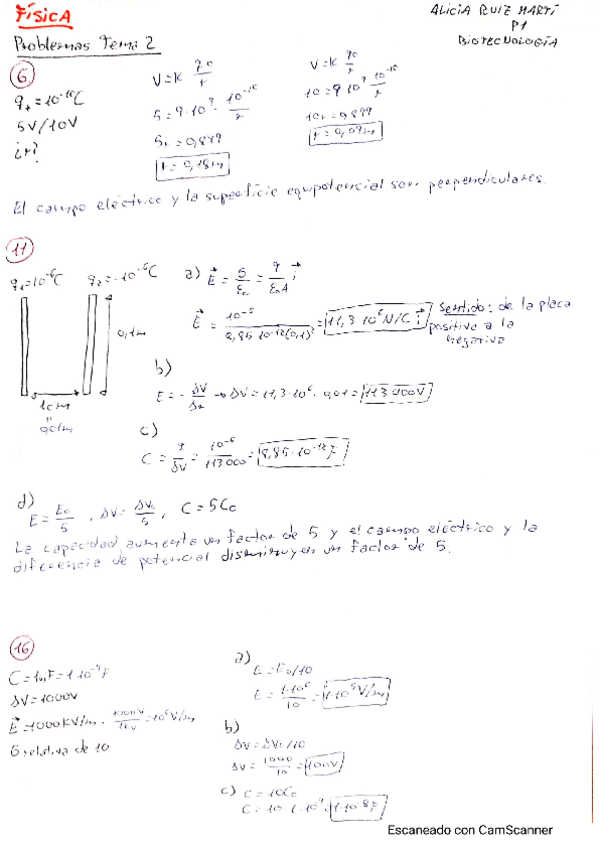 FÍSICA
Problemas Tema 2
ALICIA RUIZ MARTÍ
P1
BIOTECNOLOGÍA
6
q₊=10⁻¹⁰C
5V/10V
¿r?
V=K q₀/r
5=9·10⁹·10⁻¹⁰/r
r=0,18m
V=K q₀/r
10=9·10⁹·10⁻¹⁰/r
r=0,09m
El campo eléctrico y la superficie equipotencial son perpendiculares.
11
q₁=10⁻⁶C q₂=-10⁻⁶C
0,1m
1cm
0,01m
a) E = = q/ε₀A i
E = = 11,3·10⁶N/C i
Sentido: de la placa
positiva a la
negativa
b)
E = - ΔV/Δx → ΔV = 11,3·10⁶ · 0,01 = 113000V
c)
C = q/ΔV = 10⁻⁶/113000 = 8,85·10⁻¹²F
d)
E = E₀/5 , ΔV = ΔV₀/5 , C = 5C₀
La capacidad aumenta un factor de 5 y el campo eléctrico y la
diferencia de potencial disminuyen un factor de 5.
16
C=1nF=1·10⁻⁹F
ΔV=1000V
E=1000KV/m · =10⁶V/m
relativa de 10
a)
E=E₀/10
E = 1·10⁶/10 = 1·10⁵V/m
b)
ΔV=ΔV₀/10
ΔV = 1000/10 = 100V
c) C = 10C₀
C = 10·1·10⁻⁹ = 1·10⁻⁸F
Escaneado con CamScanner